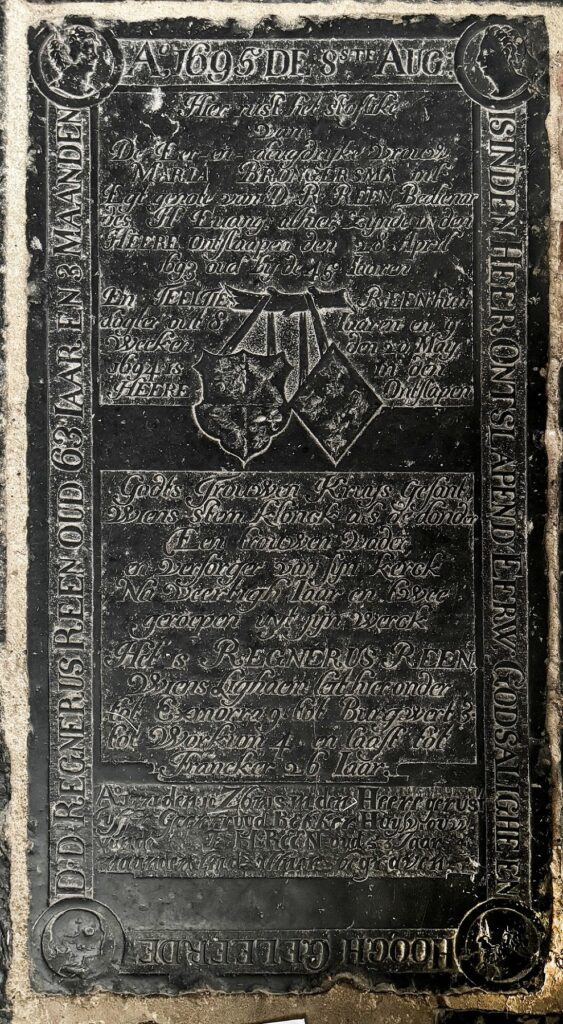 Aº. 1695 DE 8STE AUG.
IS IN DEN HEER ONTSLAPEN D EERW. GODSALIGHE EN
HOOGH GELEERDE
D.D REGNERUS REEN OUD 63 IAAR EN 3 MAANDEN
Hier rust het stoflike
van
De Eer en deugdryke vrouw
MARIA BRONGERSMA
Egt genote van D. R. REEN Bedienar
des H. Euang
HEERE ontslaapen den 28 April
1693 oud
En TEELTIE REEN hun
dogter out 8 iaaren en
weeken den 29 May
1694 is in den
HEERE Ontslapen
Godts Trouwen Kruys Gesant
Wiens stem klonck als de donder
Een trouwen vader
en versorger van sijn kerck
Nu veertigh Iaar en twee
geroepen uyt sijn werck
Het is REGNERUS REEN
Wiens lighaem leit hier onder
tot Exmorra 9 tot Burgwert 3
tot Workum 4 en laast tot
Francker 26 Iaar
in den Heere gerust
Geertruid Bekker Huisvrou
REEN oud Iaar
begraven